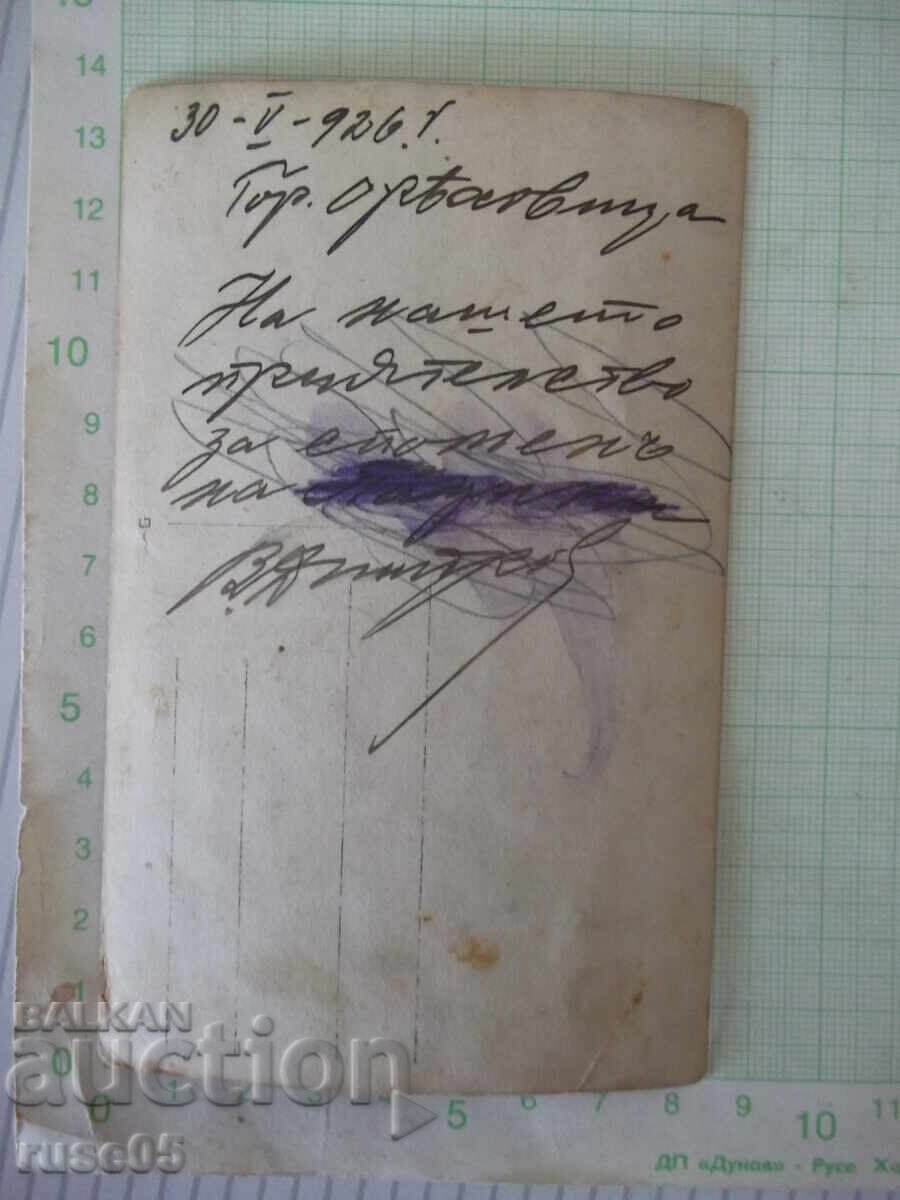 30-V-926.г.
Гор. Орѣховица
На нашето
приятелство
за споменъ
на
В. Димитров
G
15
14
13
12
11
10
9
8
7
6
5
4
3
2
1
0
0 1 2 3 4 5 6 7 8 9 10 11
BALKAN
auction
ruse05
ДП «Дунав» - Русе